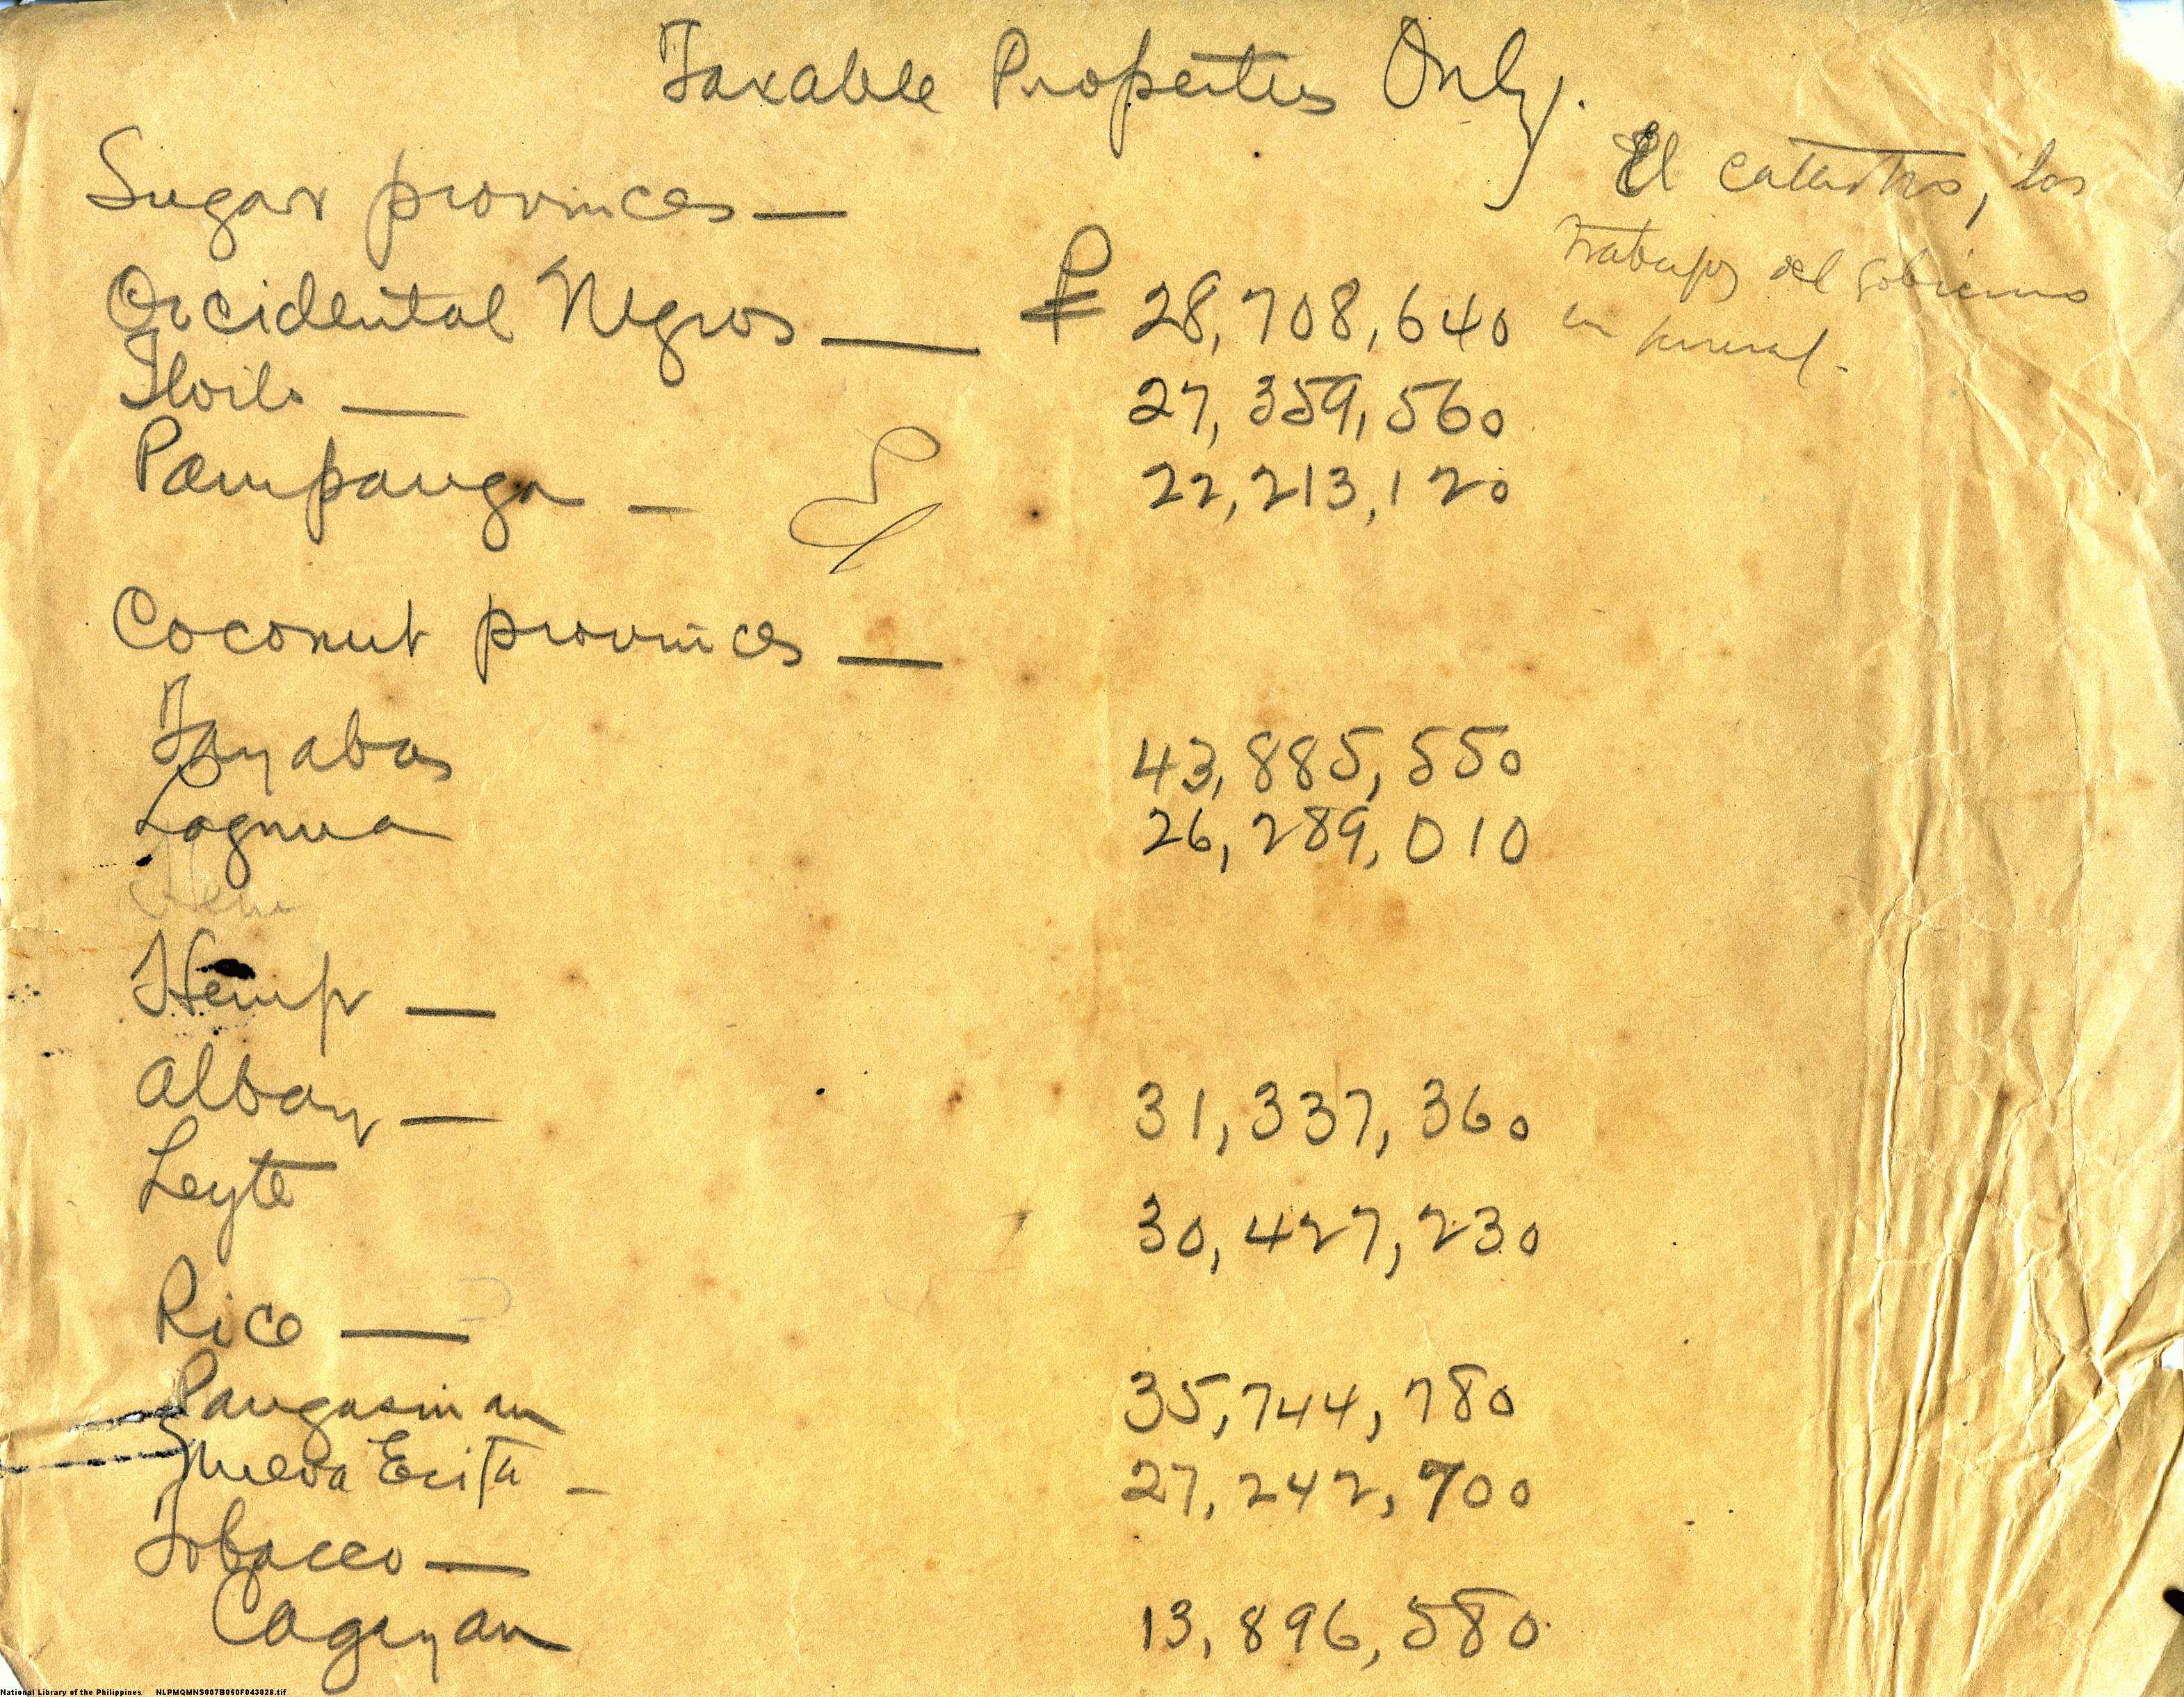 Taxable Properties Only.
El catastro, los
trabajos del gobierno
en general.
Sugar provinces —
Occidental Negros — ₱ 28,708,640
Iloilo — 27,359,560
Pampanga — 22,213,120
Coconut provinces —
Tayabas 43,885,550
Laguna 26,289,010
Hem
Hemp —
Albay — 31,337,360
Leyte 30,427,230
Rice —
Pangasinan 35,744,780
Nueva Ecija — 27,242,700
Tobacco —
Cagayan 13,896,580
National Library of the Philippines NLPMQMNS007B050F043028.tif